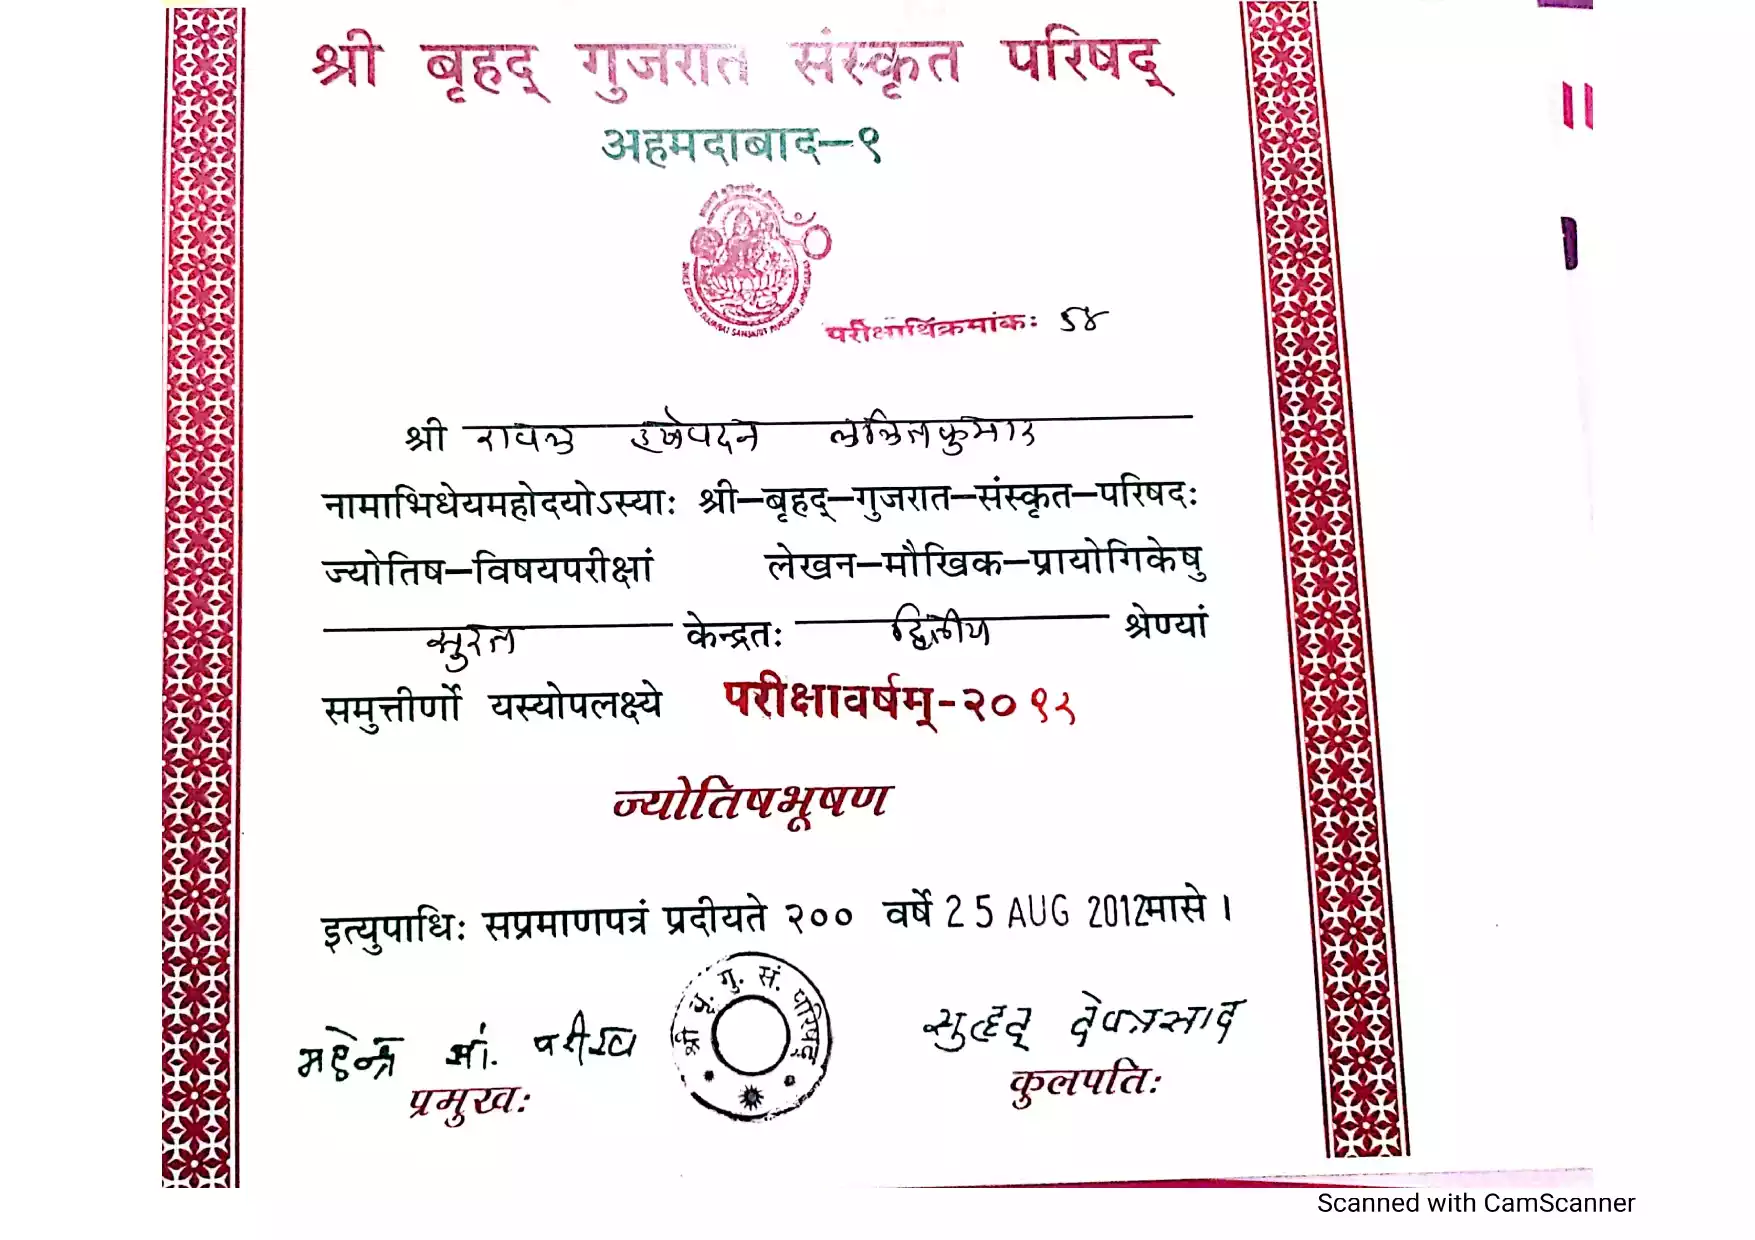 श्री बृहद् गुजरात संस्कृत परिषद्
अहमदाबाद–९
परीक्षार्थिक्रमांकः ५४
श्री रावल लललितकुमार
नामाभिधेयमहोदयोऽस्याः श्री–बृहद्–गुजरात–संस्कृत–परिषदः
ज्योतिष–विषयपरीक्षां लेखन–मौखिक–प्रायोगिकेषु
सुरत केन्द्रतः द्वितीय श्रेण्यां
समुत्तीर्णो यस्योपलक्ष्ये परीक्षावर्षम्-२०१२
ज्योतिषभूषण
इत्युपाधिः सप्रमाणपत्रं प्रदीयते २०० वर्षे 25 AUG 2012 मासे ।
श्री बृ. गु. सं. परिषद्
महेन्द्र परीख सुहृद् देवप्रसाद
प्रमुखः कुलपतिः
Scanned with CamScanner